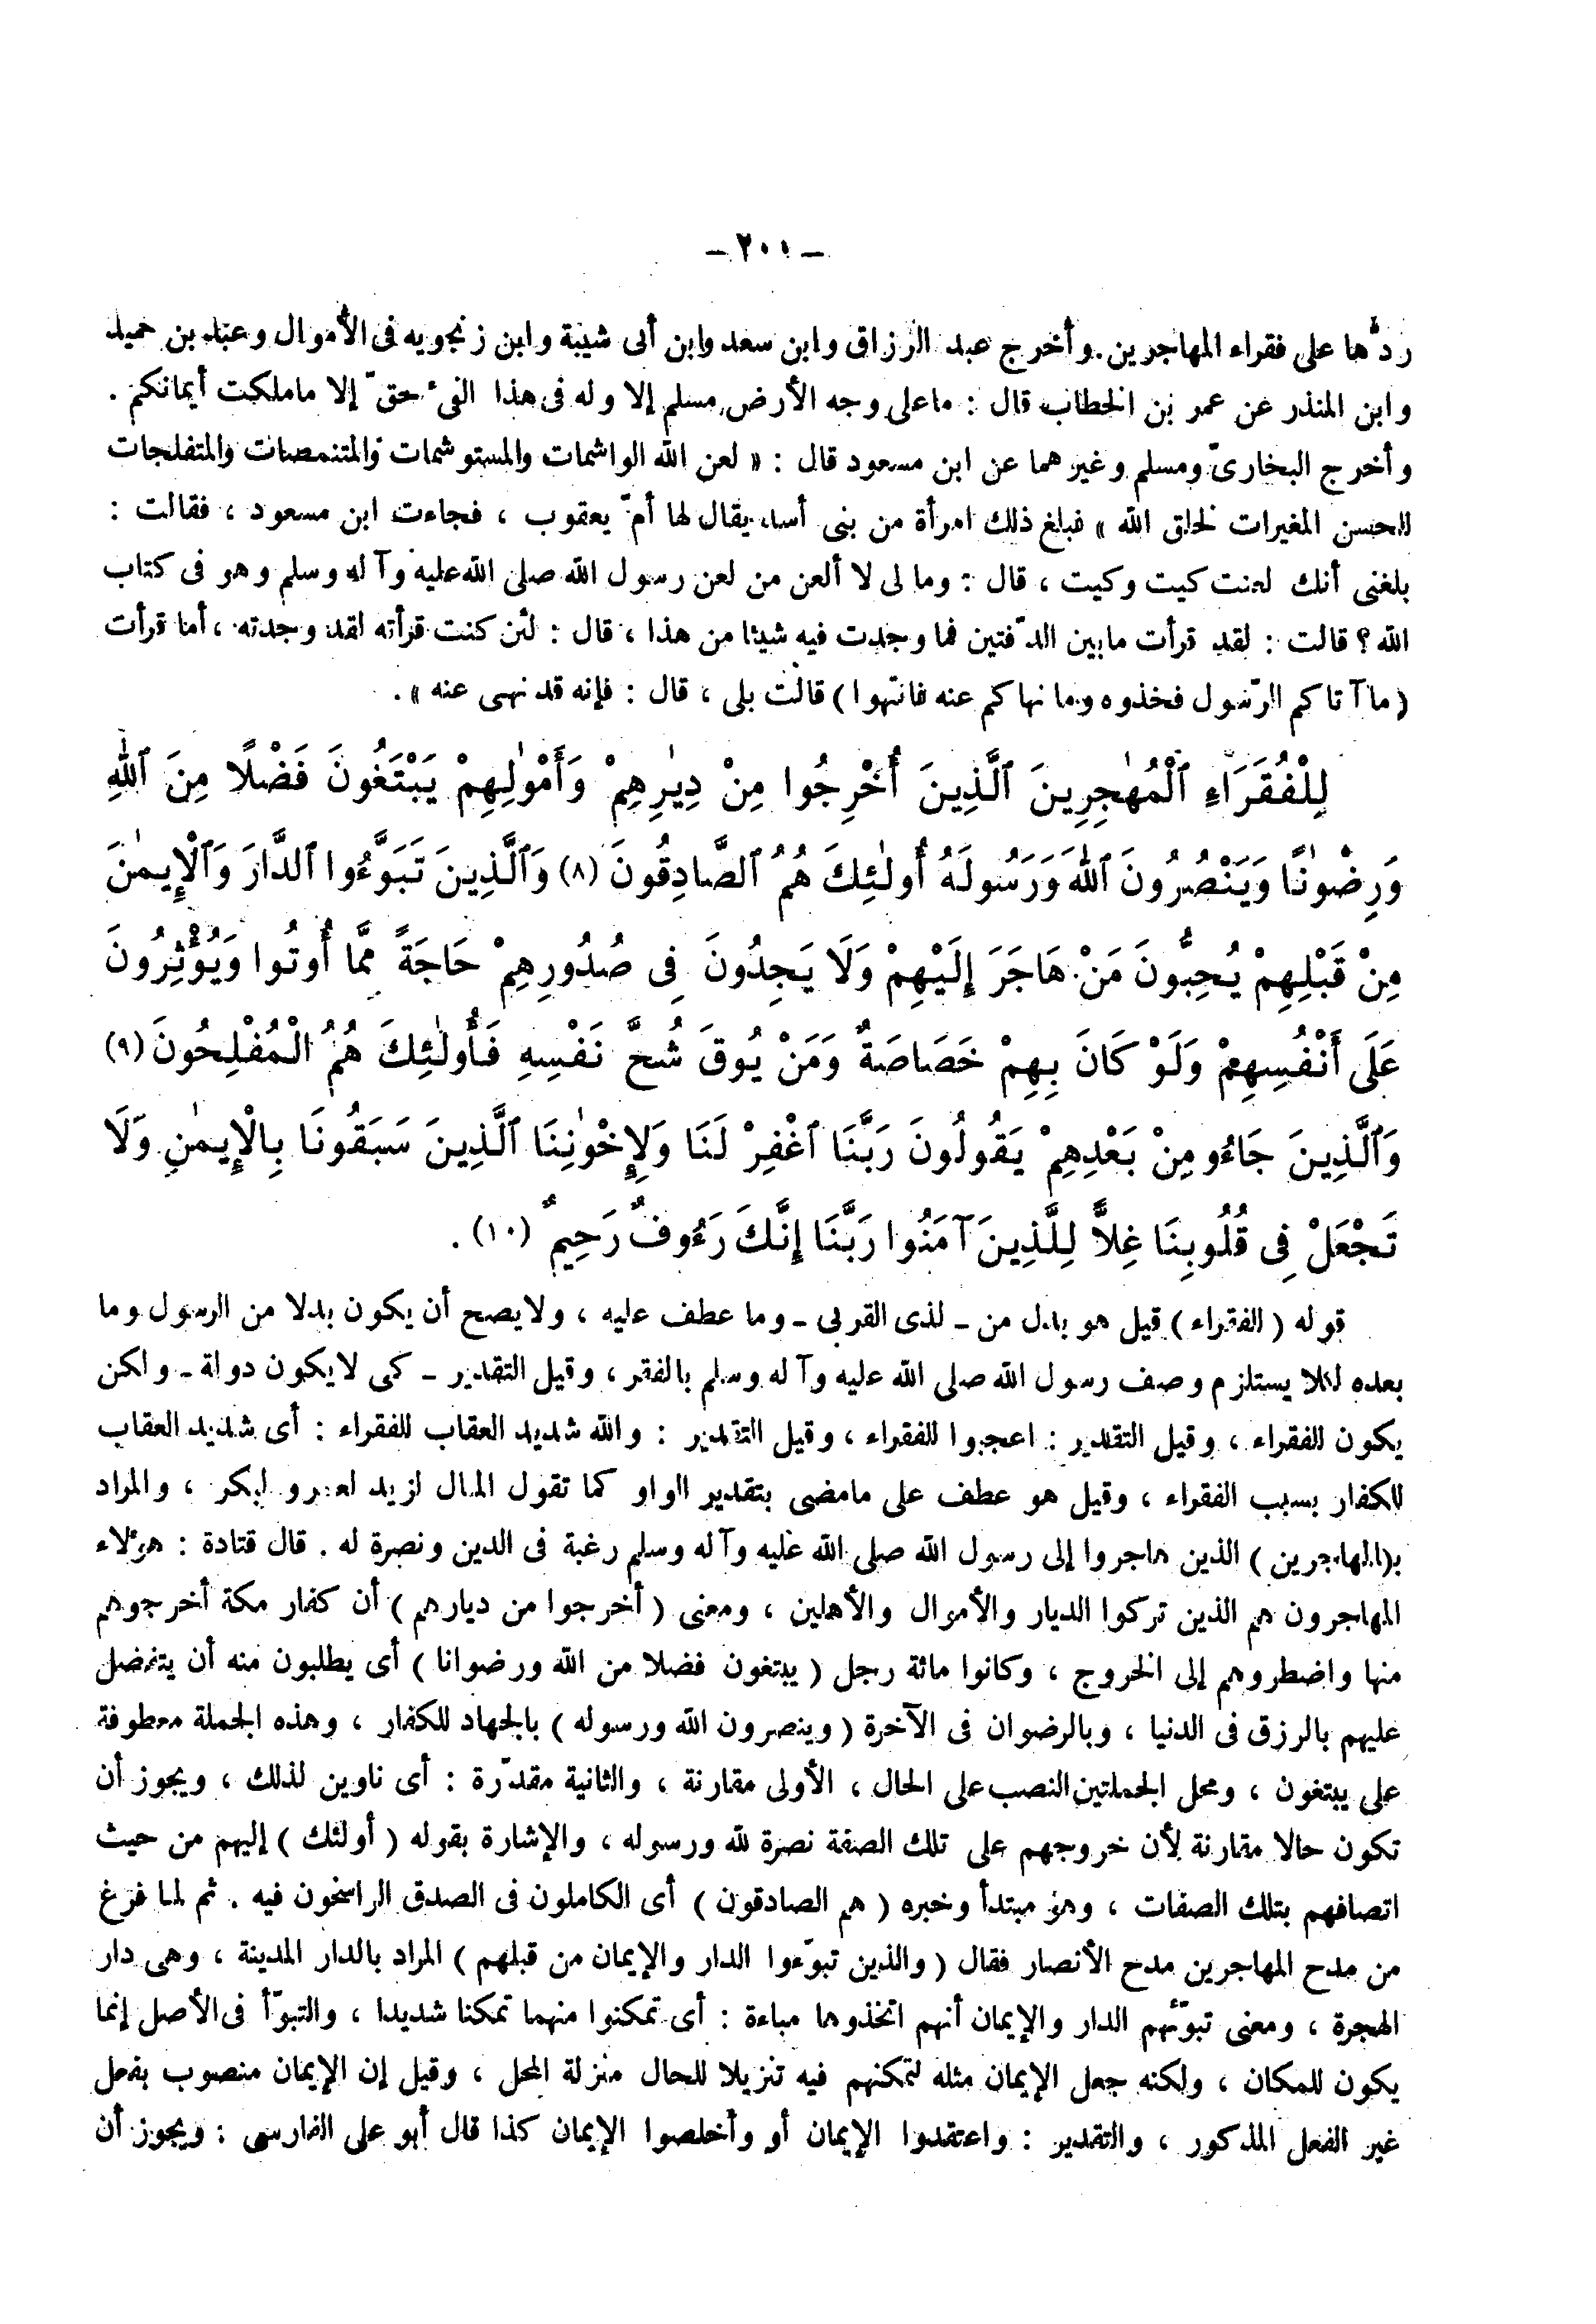 – ٢٠١ –
ردّها على فقراء المهاجرين. وأخرج عبد الرزاق وابن سعد وابن أبى شيبة وابن زنجويه فى الأموال وعبد بن حميد
وابن المنذر عن عمر بن الخطاب قال : ما على وجه الأرض مسلم إلا وله فى هذا الفىء حقّ إلا ما ملكت أيمانكم .
وأخرج البخارىّ ومسلم وغيرهما عن ابن مسعود قال : « لعن الله الواشمات والمستوشمات والمتنمصات والمتفلجات
للحسن المغيرات لخلق الله » فبلغ ذلك امرأة من بنى أسد يقال لها أمّ يعقوب ، فجاءت ابن مسعود ، فقالت :
بلغنى أنك لعنت كيت وكيت ، قال : وما لى لا ألعن من لعن رسول الله صلى الله عليه وآله وسلم وهو فى كتاب
الله ؟ قالت : لقد قرأت ما بين الدّفتين فما وجدت فيه شيئا من هذا ، قال : لئن كنت قرأته لقد وجدته ، أما قرأت
( ما آتاكم الرّسول فخذوه وما نهاكم عنه فانتهوا ) قالت بلى ، قال : فإنه قد نهى عنه » .
لِلْفُقَرَاءِ ٱلْمُهَٰجِرِينَ ٱلَّذِينَ أُخْرِجُوا مِنْ دِيَٰرِهِمْ وَأَمْوَٰلِهِمْ يَبْتَغُونَ فَضْلًا مِنَ ٱللَّهِ
وَرِضْوَٰنًا وَيَنْصُرُونَ ٱللَّهَ وَرَسُولَهُ أُولَٰئِكَ هُمُ ٱلصَّادِقُونَ (٨) وَٱلَّذِينَ تَبَوَّءُوا ٱلدَّارَ وَٱلْإِيمَٰنَ
مِنْ قَبْلِهِمْ يُحِبُّونَ مَنْ هَاجَرَ إِلَيْهِمْ وَلَا يَجِدُونَ فِى صُدُورِهِمْ حَاجَةً مِمَّا أُوتُوا وَيُؤْثِرُونَ
عَلَى أَنْفُسِهِمْ وَلَوْ كَانَ بِهِمْ خَصَاصَةٌ وَمَنْ يُوقَ شُحَّ نَفْسِهِ فَأُولَٰئِكَ هُمُ الْمُفْلِحُونَ (٩)
وَٱلَّذِينَ جَاءُو مِنْ بَعْدِهِمْ يَقُولُونَ رَبَّنَا ٱغْفِرْ لَنَا وَلِإِخْوَٰنِنَا ٱلَّذِينَ سَبَقُونَا بِالْإِيمَٰنِ وَلَا
تَجْعَلْ فِى قُلُوبِنَا غِلاًّ لِلَّذِينَ آمَنُوا رَبَّنَا إِنَّكَ رَءُوفٌ رَحِيمٌ (١٠) .
قوله ( للفقراء ) قيل هو بدل من – لذى القربى – وما عطف عليه ، ولا يصح أن يكون بدلا من الرسول وما
بعده لئلا يستلزم وصف رسول الله صلى الله عليه وآله وسلم بالفقر ، وقيل التقدير – كى لا يكون دولة – ولكن
يكون للفقراء ، وقيل التقدير : اعجبوا للفقراء ، وقيل التقدير : والله شديد العقاب للفقراء : أى شديد العقاب
للكفار بسبب الفقراء ، وقيل هو عطف على ما مضى بتقدير الواو كما تقول المال لزيد لعمرو لبكر ، والمراد
بـ(المهاجرين ) الذين هاجروا إلى رسول الله صلى الله عليه وآله وسلم رغبة فى الدين ونصرة له . قال قتادة : هؤلاء
المهاجرون هم الذين تركوا الديار والأموال والأهلين ، ومعنى ( أخرجوا من ديارهم ) أن كفار مكة أخرجوهم
منها واضطروهم إلى الخروج ، وكانوا مائة رجل ( يبتغون فضلا من الله ورضوانا ) أى يطلبون منه أن يتفضل
عليهم بالرزق فى الدنيا ، وبالرضوان فى الآخرة ( وينصرون الله ورسوله ) بالجهاد للكفار ، وهذه الجملة معطوفة
على يبتغون ، ومحل الجملتين النصب على الحال ، الأولى مقارنة ، والثانية مقدّرة : أى ناوين لذلك ، ويجوز أن
تكون حالا مقارنة لأن خروجهم على تلك الصفة نصرة لله ورسوله ، والإشارة بقوله ( أولئك ) إليهم من حيث
اتصافهم بتلك الصفات ، وهو مبتدأ وخبره ( هم الصادقون ) أى الكاملون فى الصدق الراسخون فيه . ثم لما فرغ
من مدح المهاجرين مدح الأنصار فقال ( والذين تبوّءوا الدار والإيمان من قبلهم ) المراد بالدار المدينة ، وهى دار
الهجرة ، ومعنى تبوّئهم الدار والإيمان أنهم اتخذوها مباءة : أى تمكنوا منهما تمكنا شديدا ، والتبوّأ فى الأصل إنما
يكون للمكان ، ولكنه جعل الإيمان مثله لتمكنهم فيه تنزيلا للحال منزلة المحل ، وقيل إن الإيمان منصوب بفعل
غير الفعل المذكور ، والتقدير : واعتقدوا الإيمان أو وأخلصوا الإيمان كذا قال أبو على الفارسى : ويجوز أن